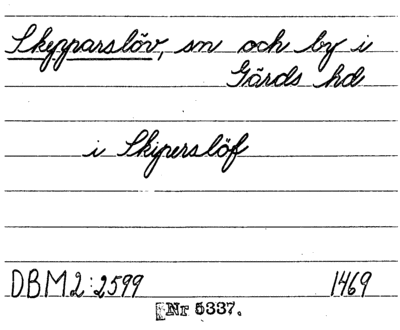 Skepparslöv, sn och by i
Gärds hd
i Skiperslöf
DBM 2:2599 1469
Nr 5337.